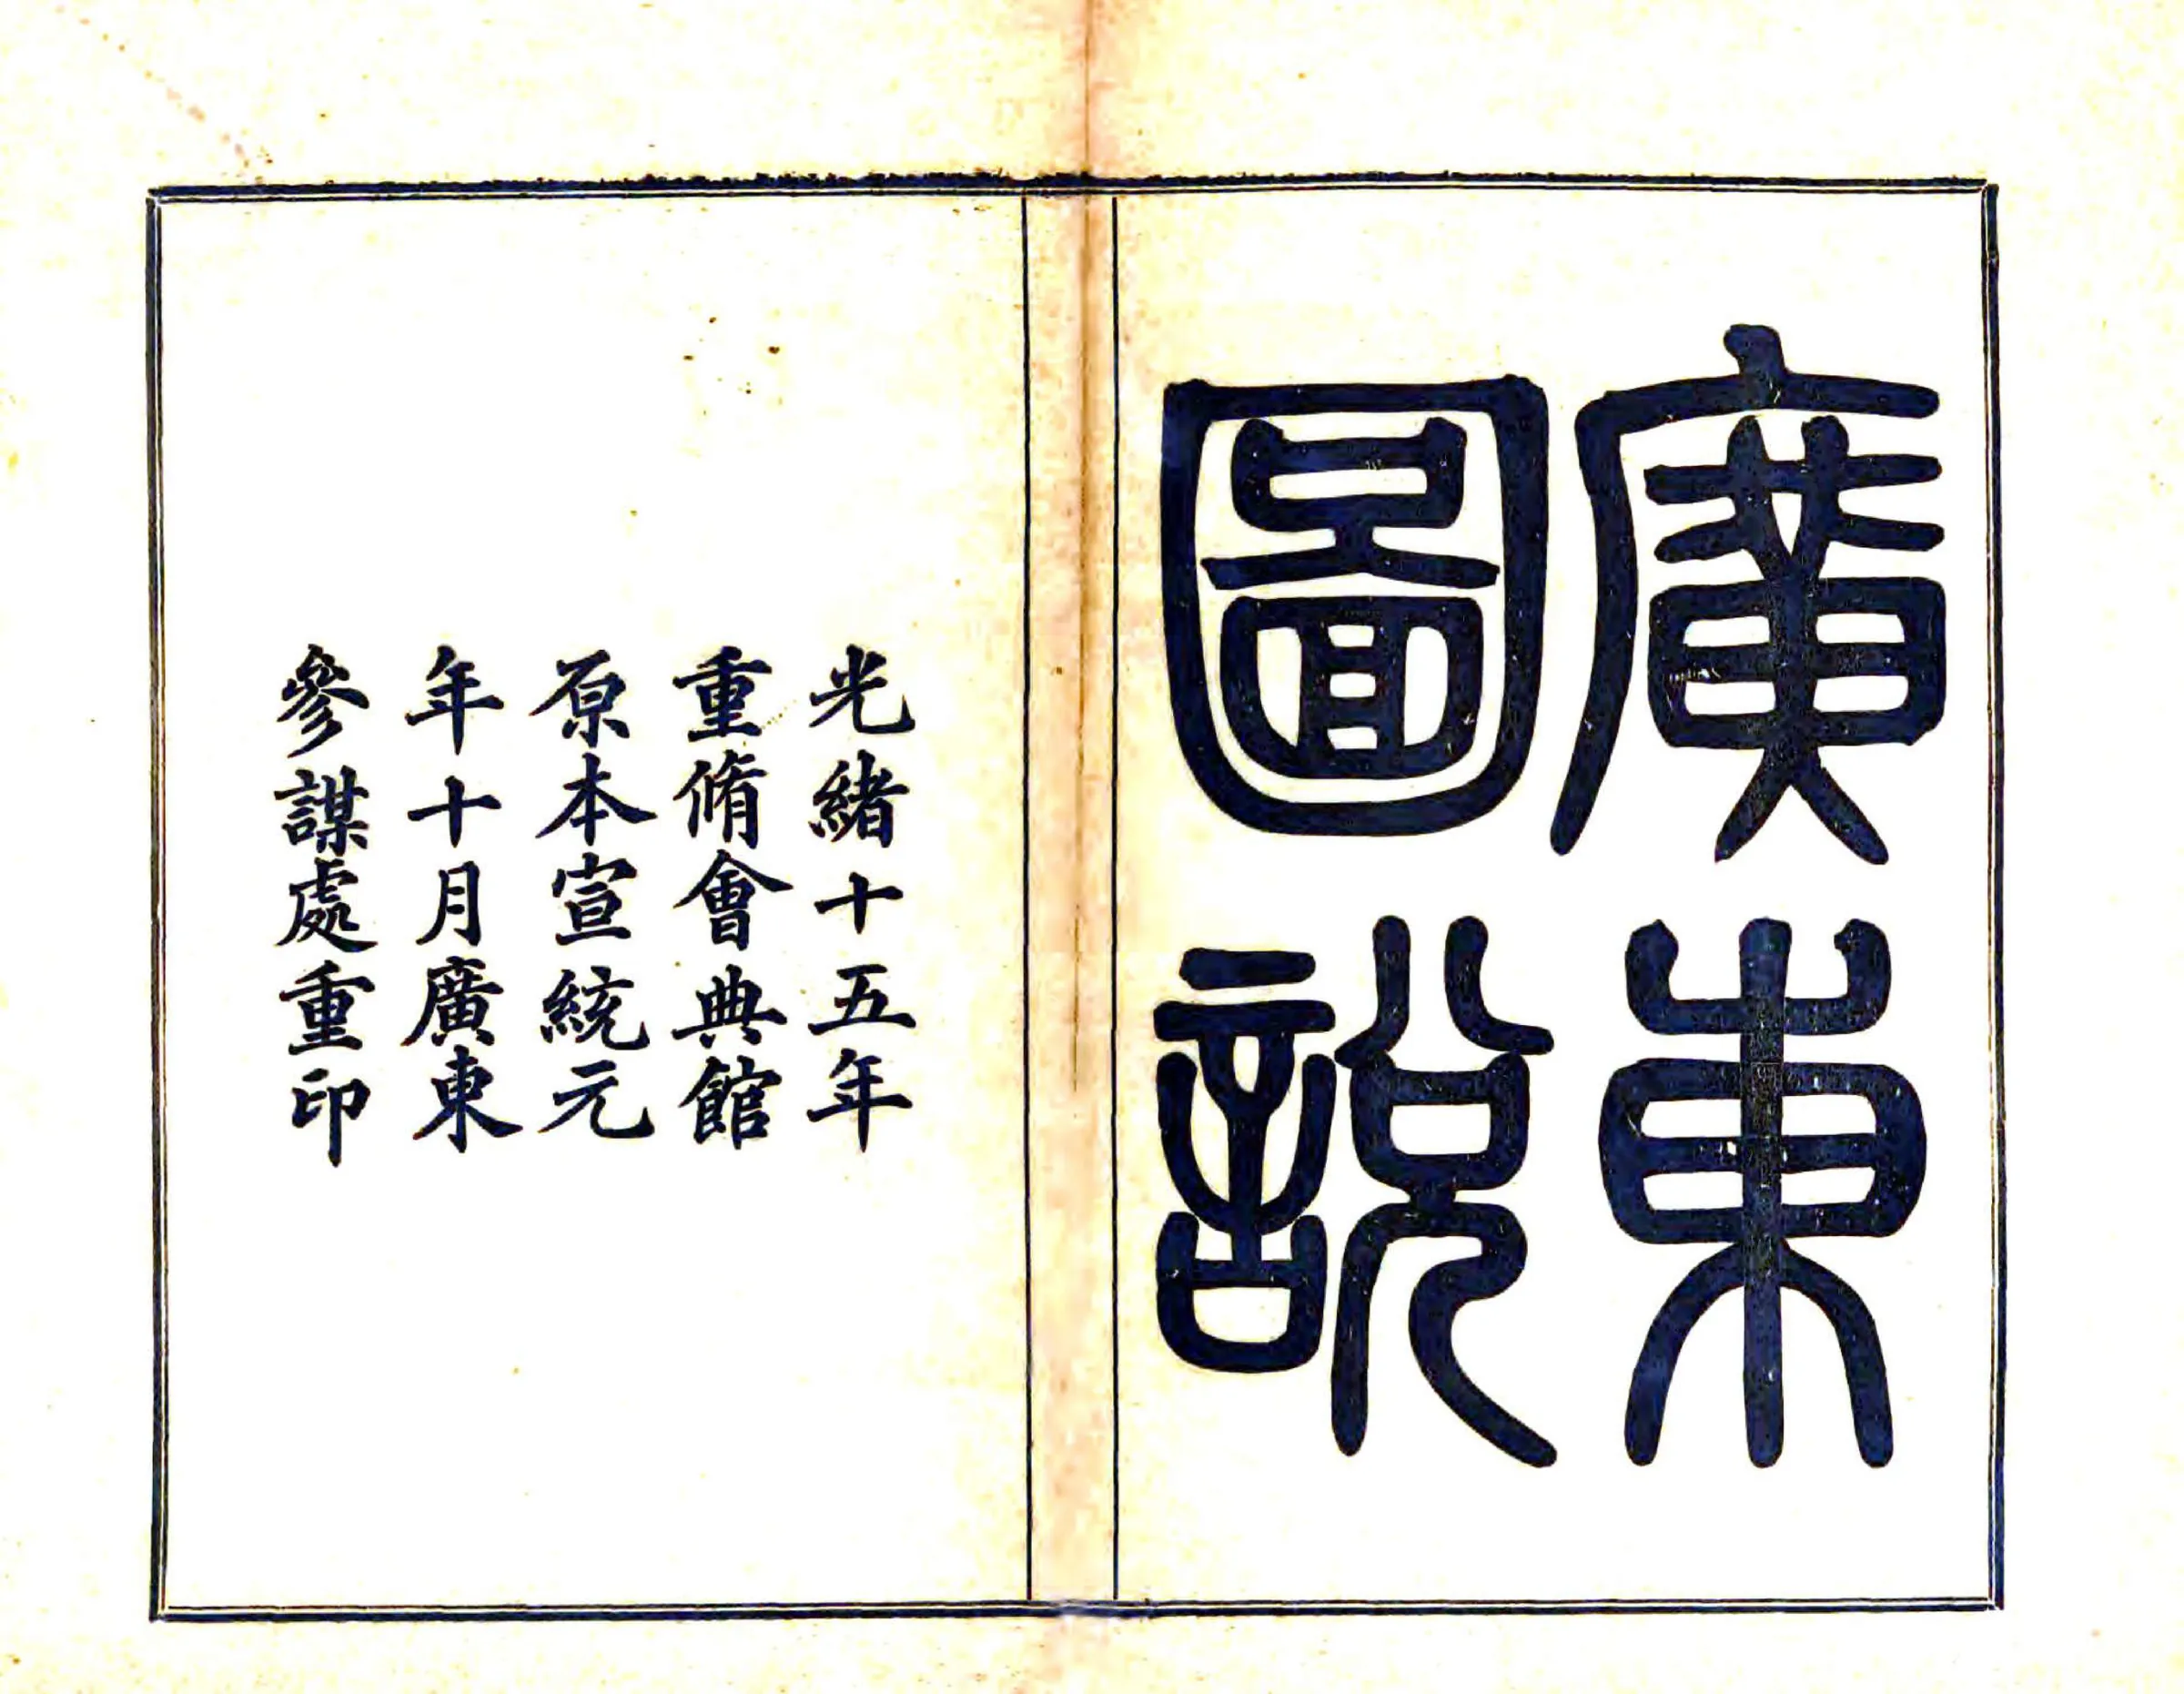 廣東
圖說
光緒十五年
重脩會典館
原本宣統元
年十月廣東
參謀處重印